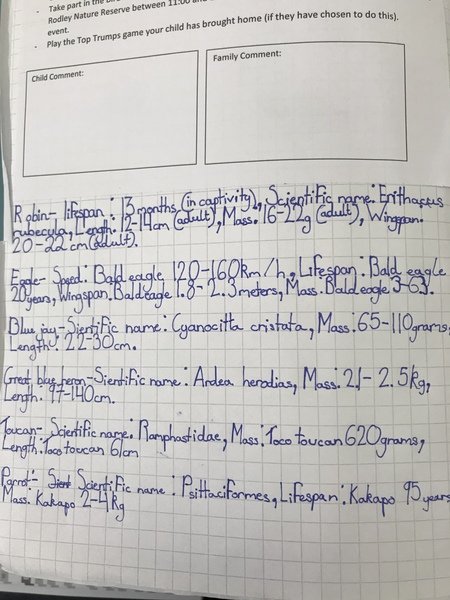 Take part in the
Rodley Nature Reserve between 11:00 and
event.
Play the Top Trumps game your child has brought home (if they have chosen to do this).
Child Comment:
Family Comment:
Robin- lifespan: 13 months (in captivity), Scientific name: Erithacus
rubecula, Length: 12-14cm (adult), Mass: 16-22g (adult), Wingpan:
20-22cm (adult).
Eagle- Speed: Bald eagle 120-160km/h, Lifespan: Bald eagle
20years, Wingspan: Bald eagle 1.8-2.3meters, Mass: Bald eagle 3-6.3.
Blue jay- Sientific name: Cyanocitta cristata, Mass: 65-110grams,
Length: 22-30cm.
Great blue heron-Sientific name: Ardea herodias, Mass: 2.1-2.5kg,
Lengh: 97-140cm.
Toucan- Scientific name: Ramphastidae, Mass: Toco toucan 620grams,
Length: Toco toucan 61cm
Parrot- Scientific name: Psittaciformes, Lifespan: Kakapo 95 years
Mass: Kakapo 2-4kg